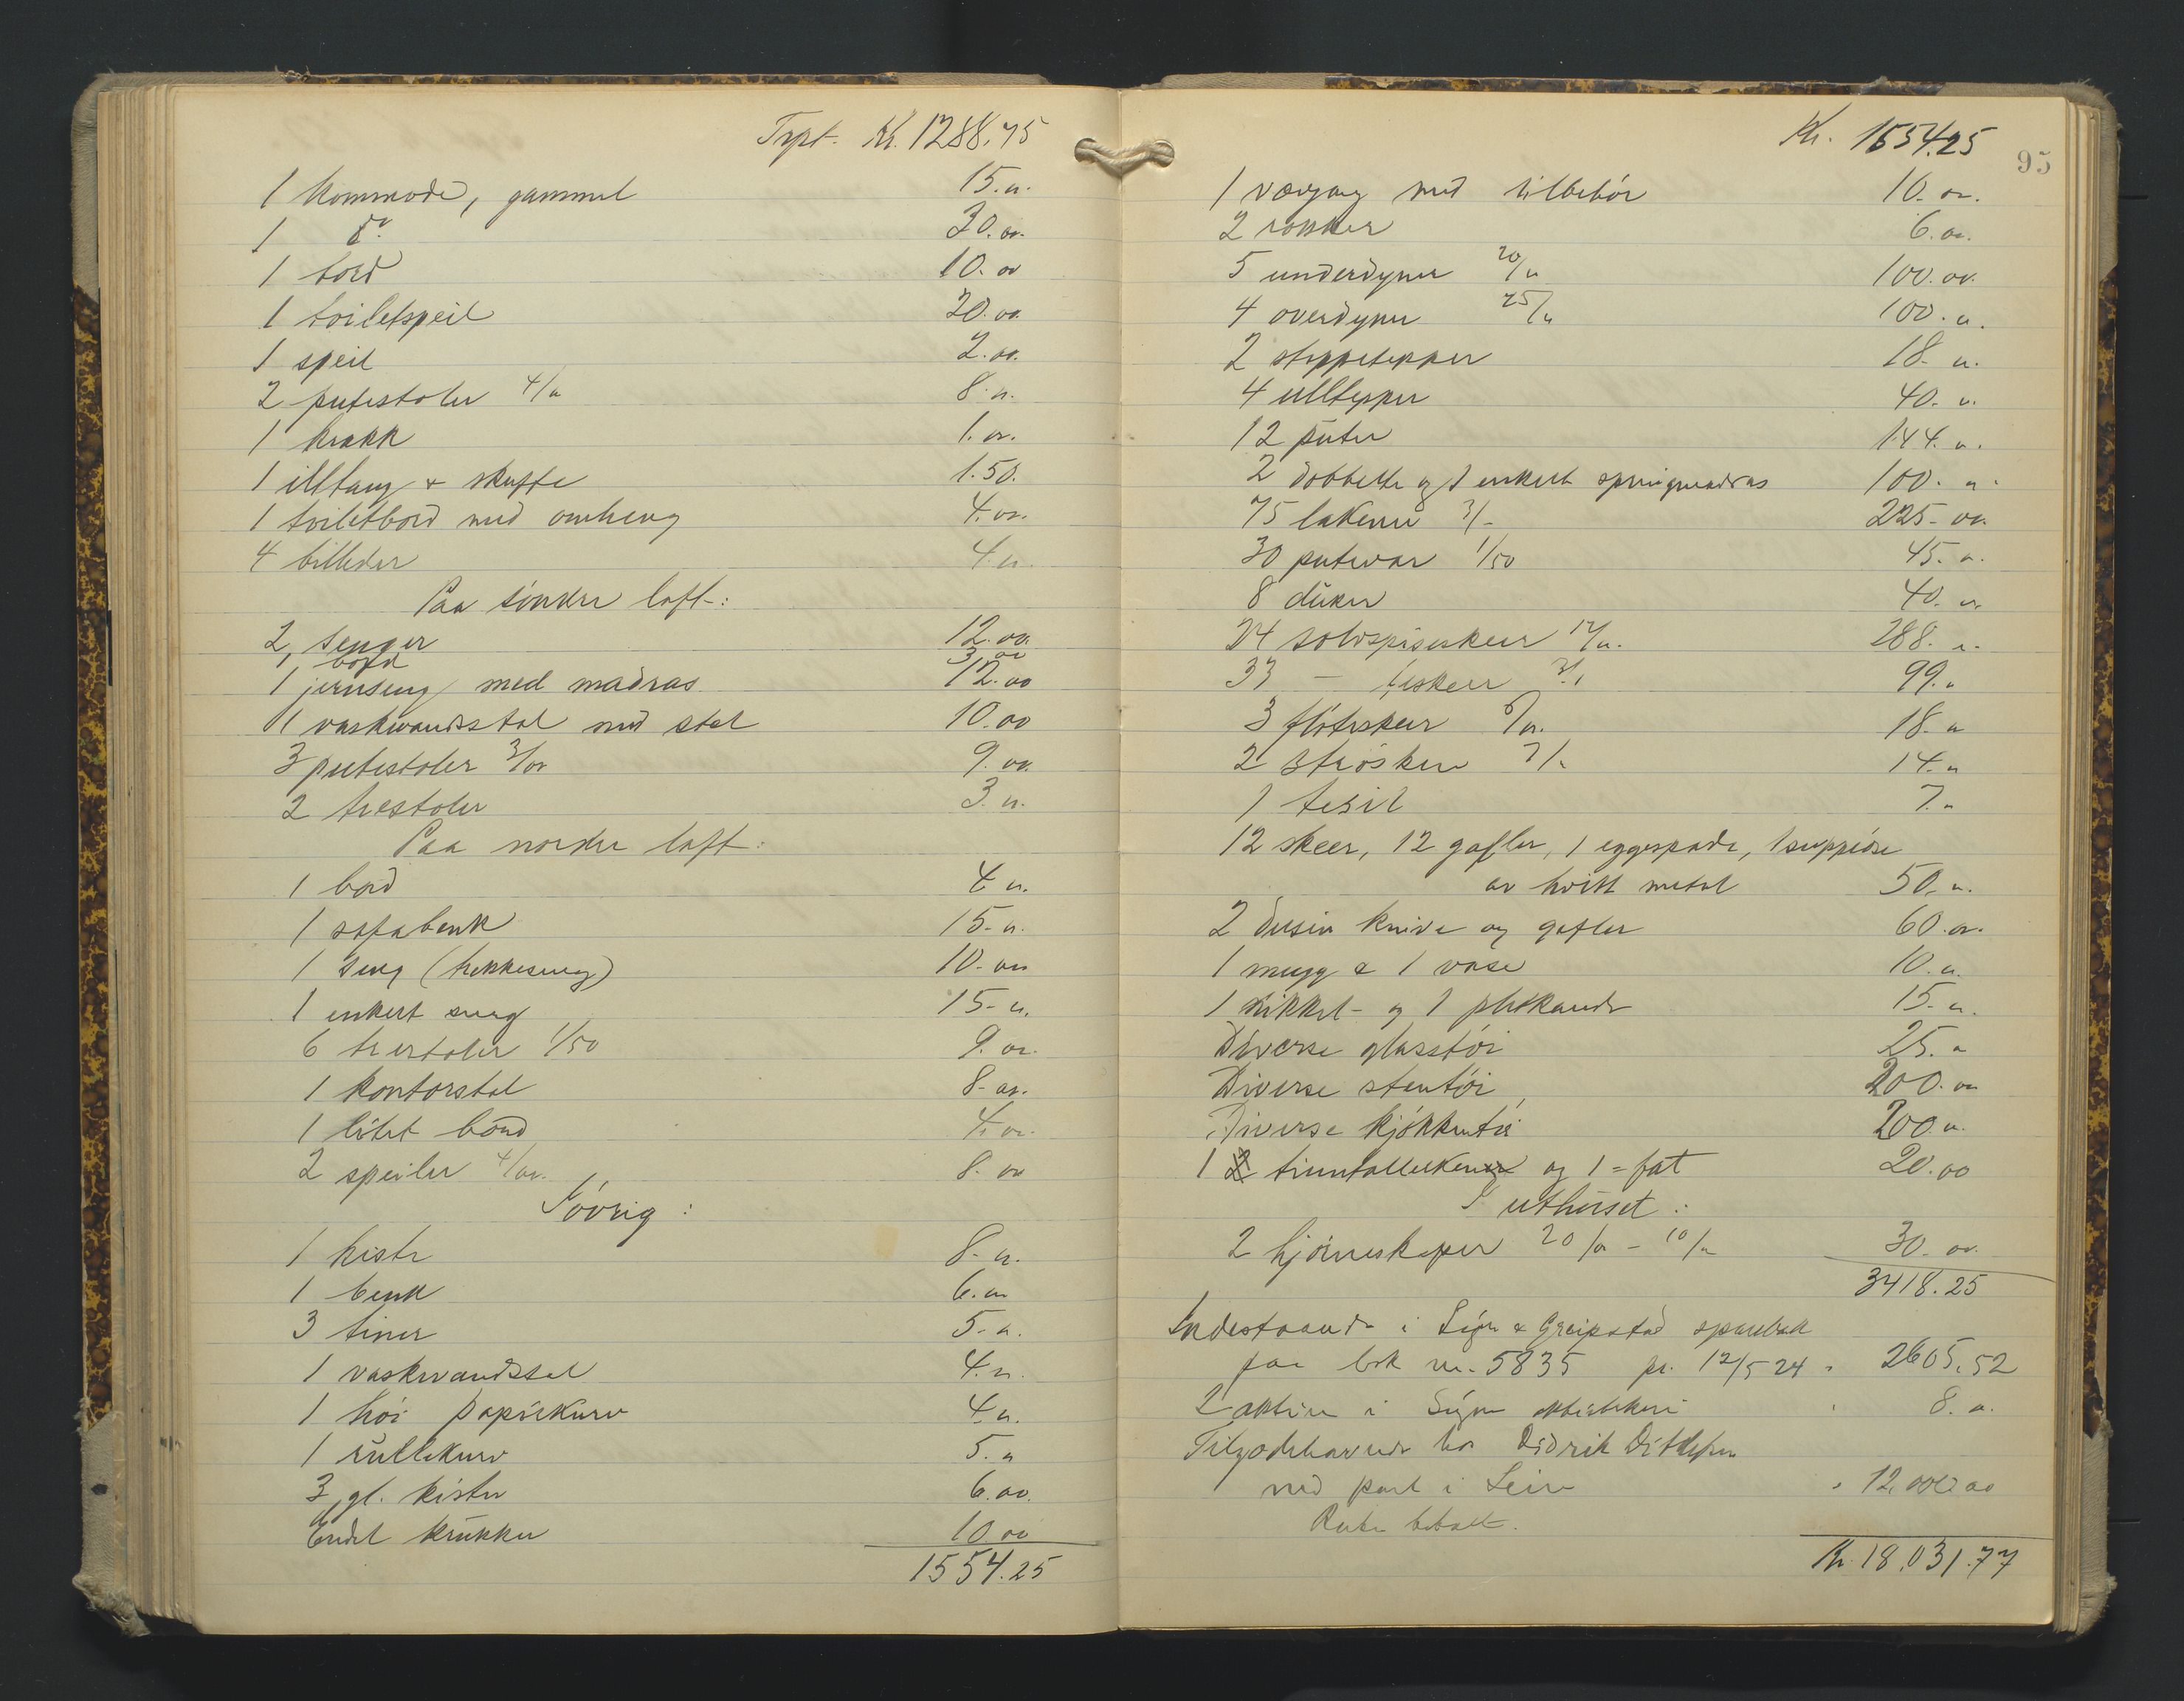 Trpt. Kr. 1288.75
1 kommode, gammel 15.00
1 do. 30.00
1 bord 10.00
1 toiletspeil 20.00
1 speil 2.00
2 putestoler 4/00 8.00
1 krakk 1.00
1 ildtang & skuffe 1.50.
1 toiletbord med omheng 4.00
4 billeder 4.00
Paa söndre loft:
2 senger 12.00
1 bord 3.00
1 jernseng med madras 12.00
1 vaskevandsstol med stel 10.00
3 putestoler 3/00 9.00
2 trestoler 3.00
Paa nordre loft:
1 bord 4.00
1 sofabenk 15.00
1 seng (trekkeseng) 10.00
1 enkelt seng 15.00
6 trestoler 1/50 9.00
1 kontorstol 8.00
1 litet bord 4.00
2 speiler 4/00. 8.00
Iövrig:
1 kiste 8.00
1 benk 6.00
3 tiner 5.00
1 vaskevandsstol 4.00
1 höi papirkurv 4.00
1 rullekurv 5.00
3 gl. kister 6.00
Endel krukker 10.00
1554.25
95
Kr. 1554.25
1 med tilbehör 10.00
2 rokker 6.00
5 underdyner 20/00 100.00
4 overdyner 25/00 100.00
2 steppetepper 18.00
4 ulltepper 40.00
12 puter 144.00
2 dobbelte og 1 enkelt springmadras 100.00
75 lakener 3/- 225.00
30 putevar 1/50 45.00
8 duker 40.00
24 sölvspiseskeer 12/00. 288.00
33 — teskeer 3/ 99.00
3 flöteskeer 6/00. 18.00
2 ströskeer 7/00 14.00
1 tesil 7.00
12 skeer, 12 gafler, 1 eggespade, 1 suppeöse
av hvitt metal 50.00
2 dusin knive og gafler 60.00
1 mugge & 1 vase 10.00
1 nikkel- og 1 pletkande 15.00
Diverse glasstöi 25.00
Diverse stentöi 200.00
Diverse kjökkentöi 200.00
1 2 tinntallerkener og 1 = fat 20.00
I uthuset:
2 hjörneskaper 20/00 - 10/00 30.00
3418.25
Indestaaende i Sögne & Greipstad sparebank
paa bok nr. 5835 pr. 12/5 24 " 2605.52
2 aktier i Sögne 8.00
Tilgodehavende hos Didrik Ditlefsen
med pant i Leire " 12,000.00
Rente betalt.
Kr. 18,031.77